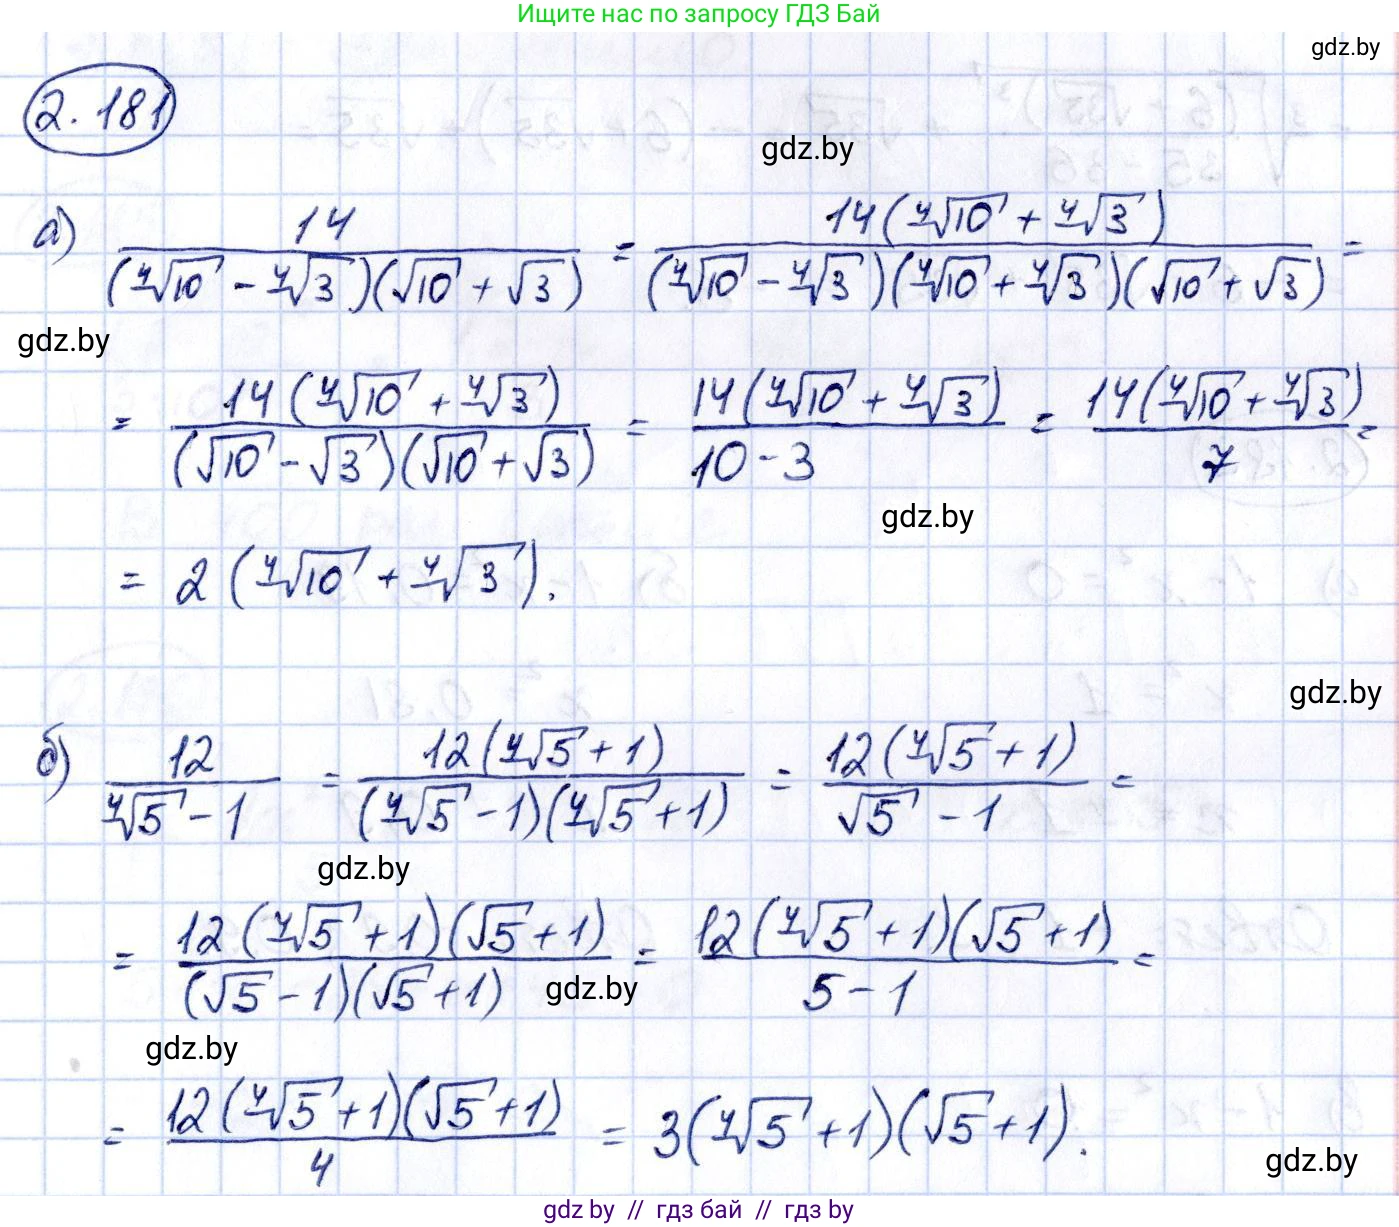 Ищите нас по запросу ГДЗ Бай
gdz.by
2.181
gdz.by
а) 14/((⁴√10 - ⁴√3)(√10 + √3)) = 14(⁴√10 + ⁴√3)/((⁴√10 - ⁴√3)(⁴√10 + ⁴√3)(√10 + √3)) =
gdz.by
= 14(⁴√10 + ⁴√3)/((√10 - √3)(√10 + √3)) = 14(⁴√10 + ⁴√3)/(10 - 3) = 14(⁴√10 + ⁴√3)/7 =
gdz.by
= 2(⁴√10 + ⁴√3).
gdz.by
б) 12/(⁴√5 - 1) = 12(⁴√5 + 1)/((⁴√5 - 1)(⁴√5 + 1)) = 12(⁴√5 + 1)/(√5 - 1) =
gdz.by
= 12(⁴√5 + 1)(√5 + 1)/((√5 - 1)(√5 + 1)) = 12(⁴√5 + 1)(√5 + 1)/(5 - 1) =
gdz.by
gdz.by
= 12(⁴√5 + 1)(√5 + 1)/4 = 3(⁴√5 + 1)(√5 + 1).
gdz.by
gdz by // гдз бай // гдз by